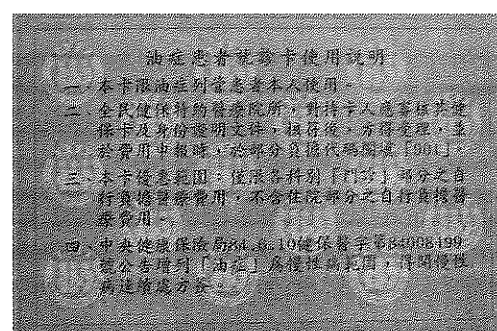 油症患者就診卡使用說明
一、本卡限油症列管患者本人使用。
二、全民健保特約醫療院所,對持卡人應審核其健
保卡及身份證明文件,核符後,方得受理,並
於費用申報時,於部分負擔代碼欄填「901」。
三、本卡優惠範圍:僅限各科別「門診」部分之自
行負擔醫療費用,不含住院部分之自行負擔醫
療費用。
四、中央健康保險局84.8.10健保醫字第84008499
號公告增列「油症」為慢性病範圍,得開慢性
病連續處方箋。